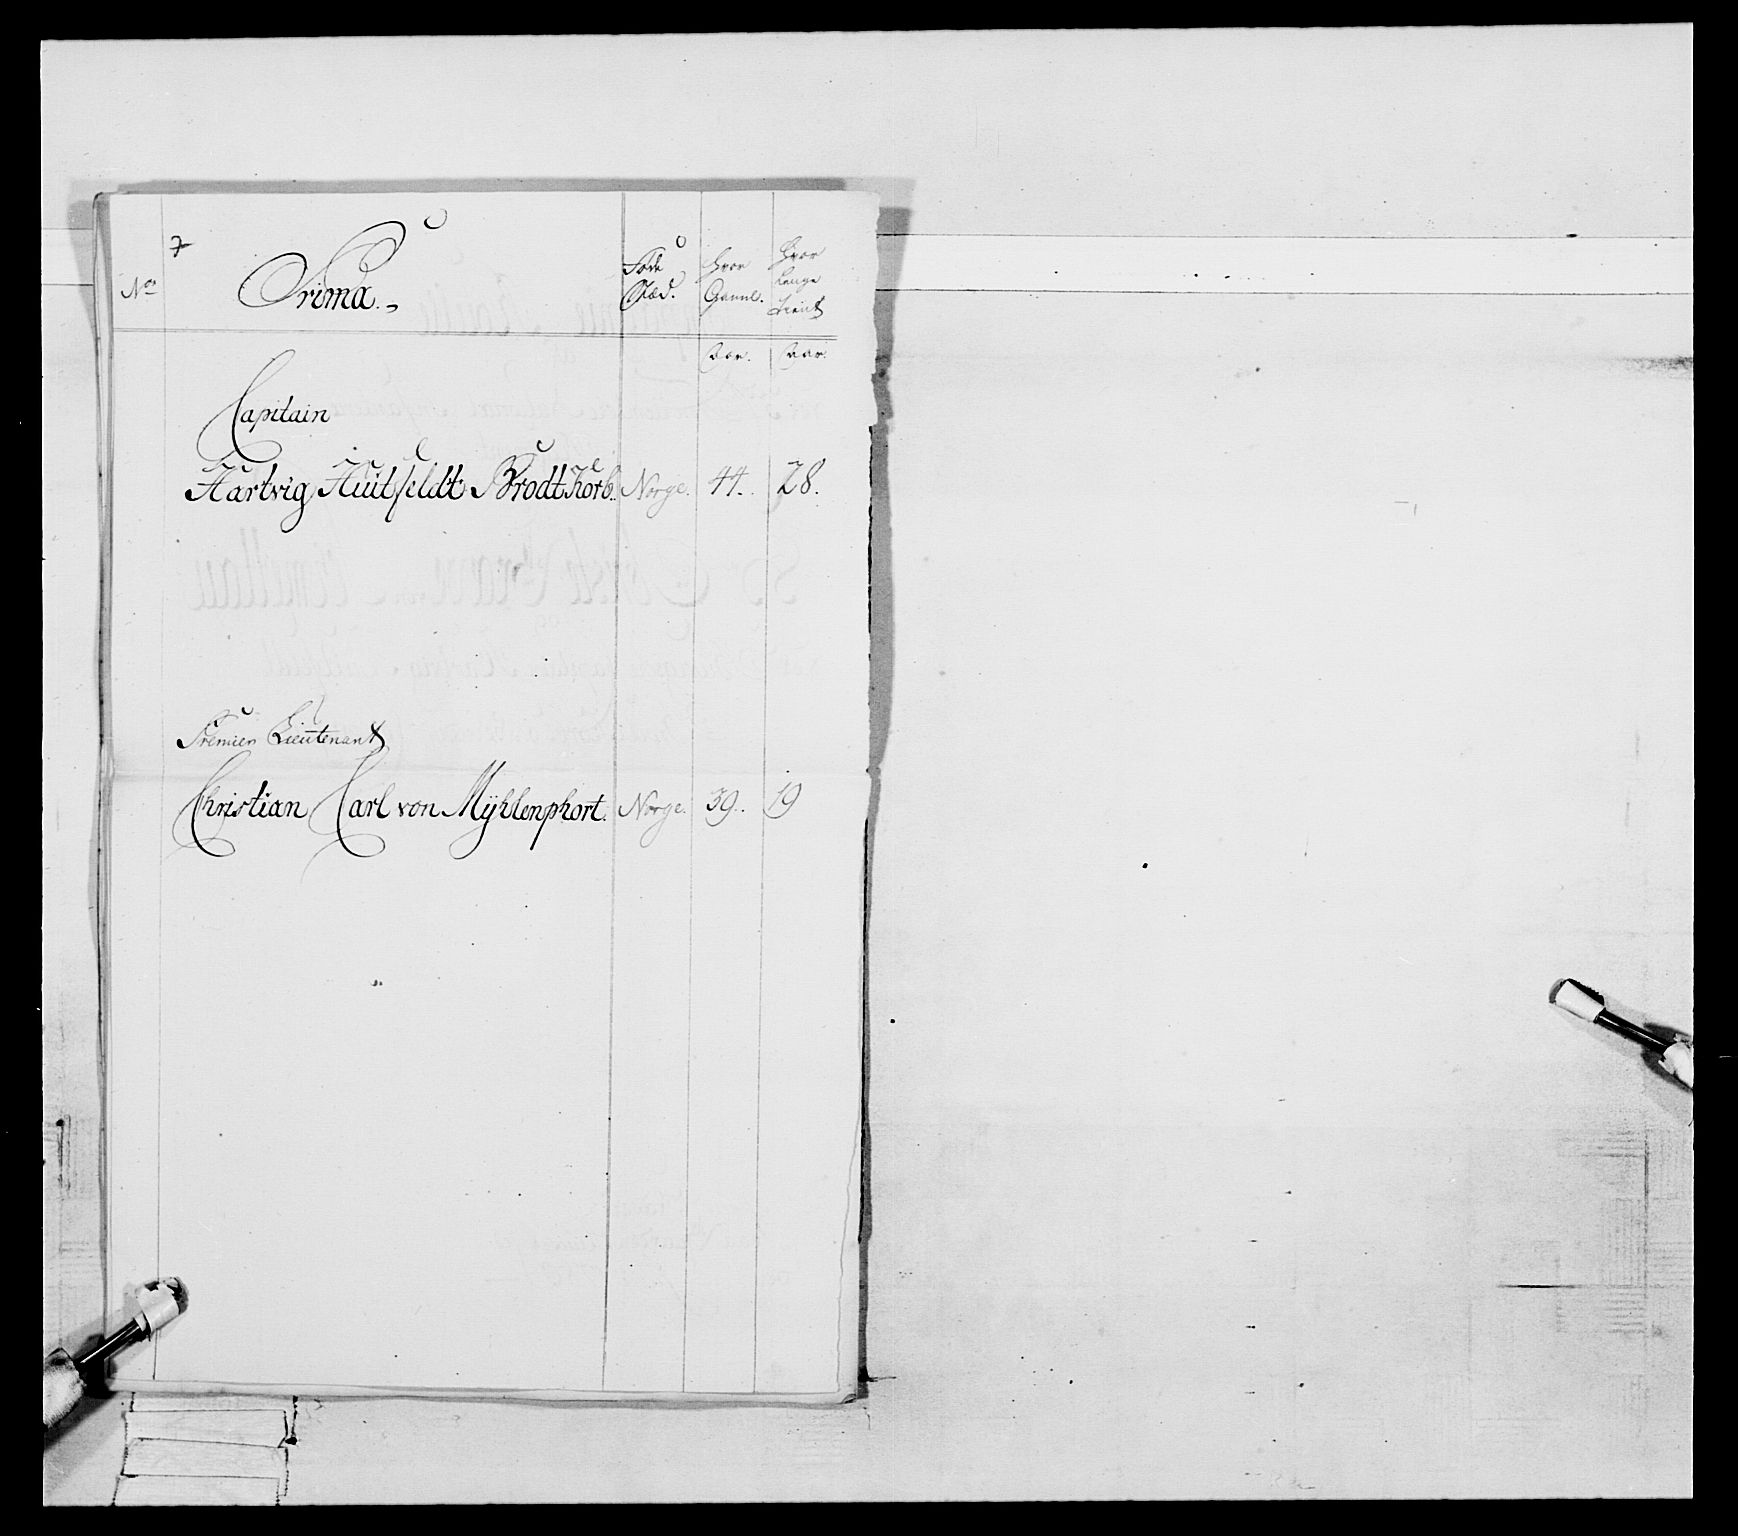 7
No
Prima.
Føde Stæd.
Hvor Gaml.
Hvor Lenge Tient
Aar. Aar.
Capitain
Hartvig Huitfeldt Brodtkorb. Norge. 44. 28.
Premier Lieutenant
Christian Carl von Mÿhlenphort. Norge. 39. 19